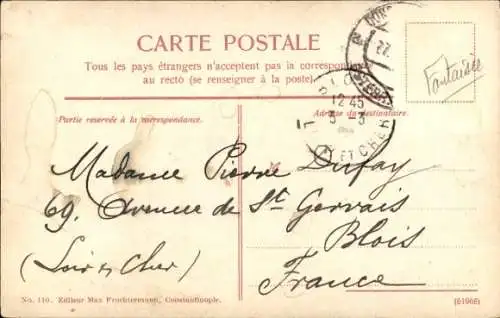 CARTE POSTALE
Tous les pays étrangers n'acceptent pas la correspondance
au recto (se renseigner à la poste).
Fantaisie
12 45
3 - 3
ET CHER
Partie reservée à la correspondance.
Adresse du destinataire.
Madame Pierre Dufay
69. Avenue de St Gervais
Blois
(Loir & Cher)
France
No. 110. Editeur Max Fruchtermann, Constantinople.
(61966)